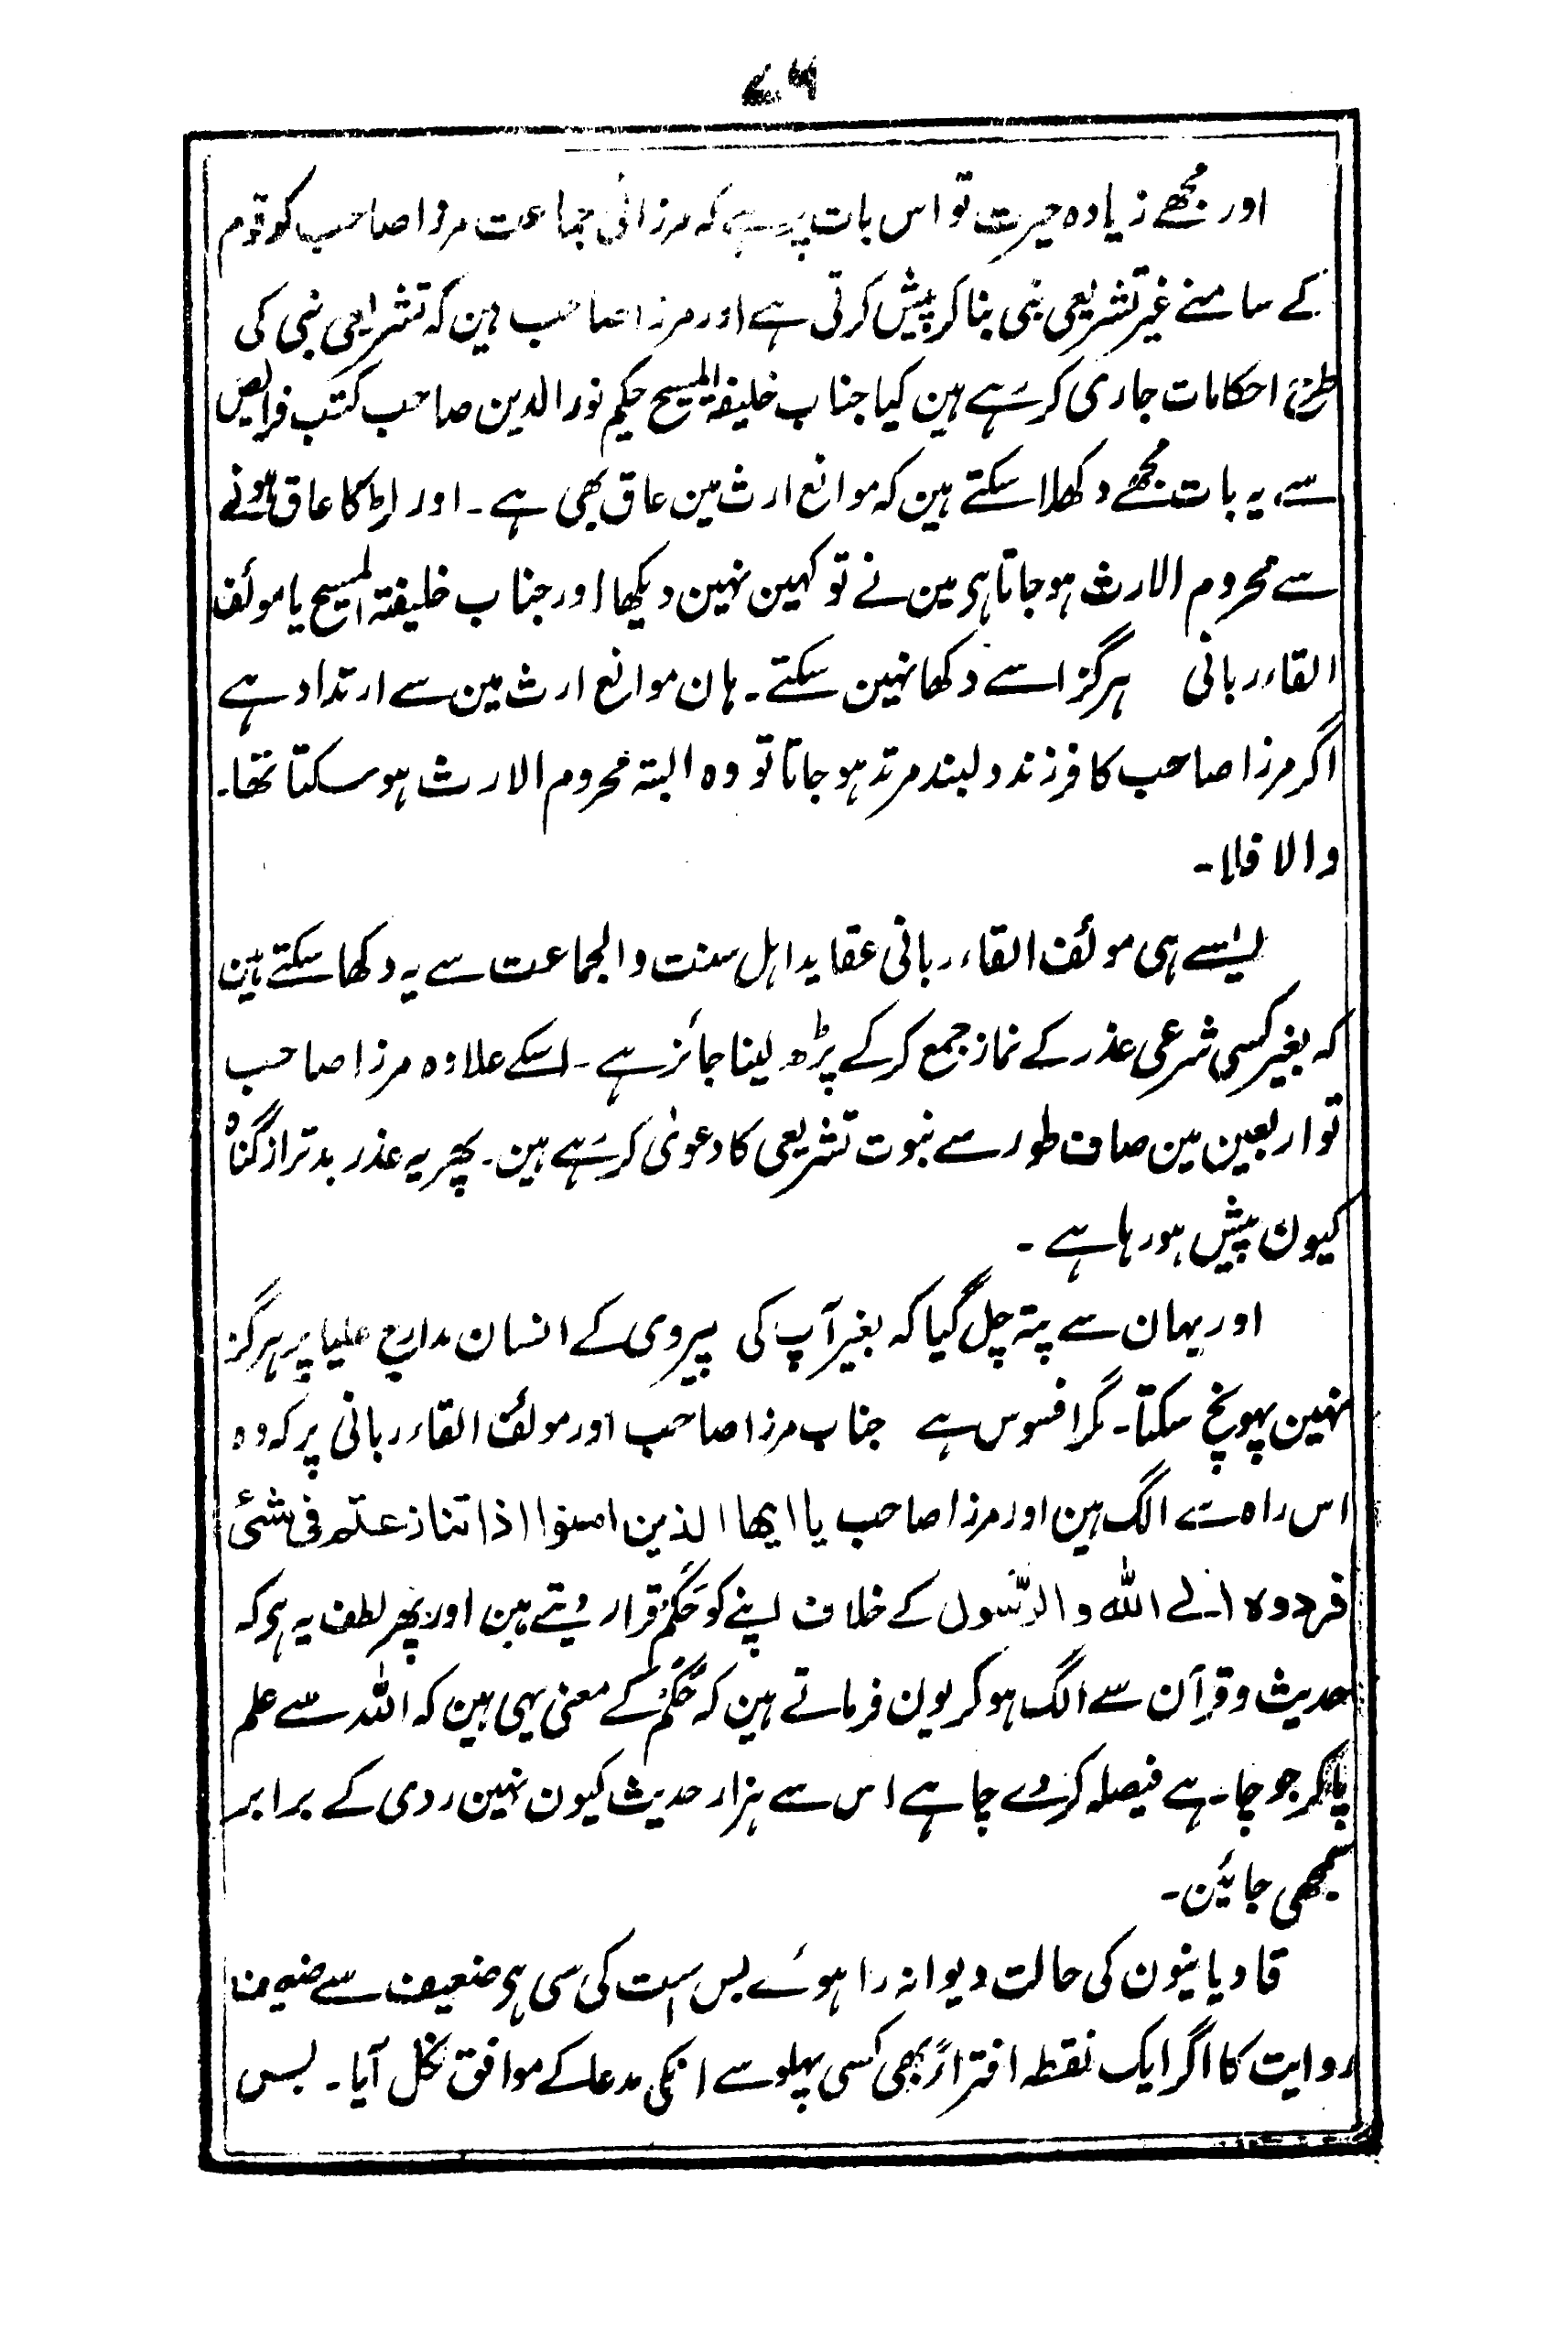 ۷۶
اور مجھے زیادہ حیرت تو اس بات پر ہے کہ مرزائی جماعت مرزا صاحب کو قوم
کے سامنے غیر تشریعی نبی بنا کر پیش کرتی ہے اور مرزا صاحب ہین کہ تشریعی نبی کی
طرح احکامات جاری کر رہے ہین کیا جناب خلیفۃ المسیح حکیم نور الدین صاحب کتب فرایض
سے یہ بات مجھے دکھلا سکتے ہین کہ موانع ارث مین عاق بھی ہے۔ اور لڑکا عاق ہونے
سے محروم الارث ہو جاتا ہی مین نے تو کہین نہین دیکھا اور جناب خلیفتہ المسیح یا موئف
القاء ربانی ہرگز اسے دکھا نہین سکتے۔ ہان موانع ارث مین سے ارتداد ہے
اگر مرزا صاحب کا فرزند دلبند مرتد ہو جاتا تو وہ البتہ محروم الارث ہو سکتا تھا۔
والا فلا۔
ایسے ہی مولئف القاء ربانی عقاید اہل سنت والجماعت سے یہ دکھا سکتے ہین
کہ بغیر کسی شرعی عذر کے نماز جمع کر کے پڑھ لینا جائز ہے۔ اسکے علاوہ مرزا صاحب
تو اربعین مین صاف طور سے نبوت تشریعی کا دعویٰ کر رہے ہین۔ پھر یہ عذر بدتر از گناہ
کیون پیش ہو رہا ہے۔
اور یہان سے پتہ چل گیا کہ بغیر آپ کی پیروی کے انسان مدارج علیا پر ہرگز
نہین پہونچ سکتا۔ مگر افسوس ہے جناب مرزا صاحب اور مولئف القاء ربانی پر کہ وہ
اس راہ سے الگ ہین اور مرزا صاحب یا ایھا الذین امنوا اذا تنازعتم فی شئ
فردوہ الے اللہ والرّسول کے خلاف اپنے کو حَکَم قرار دیتے ہین اور پھر لطف یہ ہو کہ
حدیث و قرآن سے الگ ہو کر یون فرماتے ہین کہ حَکَم کے معنی یہی ہین کہ اللہ سے علم
پاکر جو چاہے فیصلہ کر دے چاہے اس سے ہزار حدیث کیون نہین ردی کے برابر
سمجھی جائین۔
قادیانیون کی حالت دیوانہ را ہوئے بس است کی سی ہو ضعیف سے ضعیف
روایت کا اگر ایک نقطہ افتراءً بھی کسی پہلو سے انکی مدعا کے موافق نکل آیا۔ بس